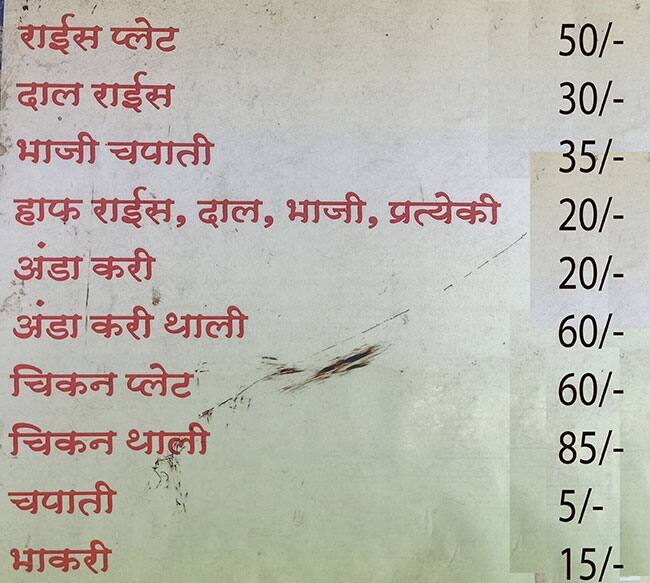 राईस प्लेट 50/-
दाल राईस 30/-
भाजी चपाती 35/-
हाफ राईस, दाल, भाजी, प्रत्येकी 20/-
अंडा करी 20/-
अंडा करी थाली 60/-
चिकन प्लेट 60/-
चिकन थाली 85/-
चपाती 5/-
भाकरी 15/-